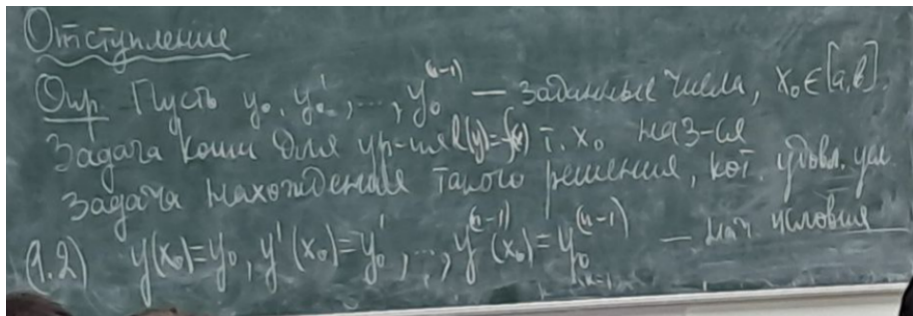 Отступление
Опр Пусть y₀, y₀', ..., y₀⁽ⁿ⁻¹⁾ — заданные числа, x₀ ∈ [a,b].
Задача Коши для ур-ия l(y)=f(x) т. x₀ наз-ся
Задача нахождения такого решения, кот. удовл. усл.
(1.2) y(x₀)=y₀, y'(x₀)=y₀', ..., y⁽ⁿ⁻¹⁾(x₀)=y₀⁽ⁿ⁻¹⁾ — нач. условия